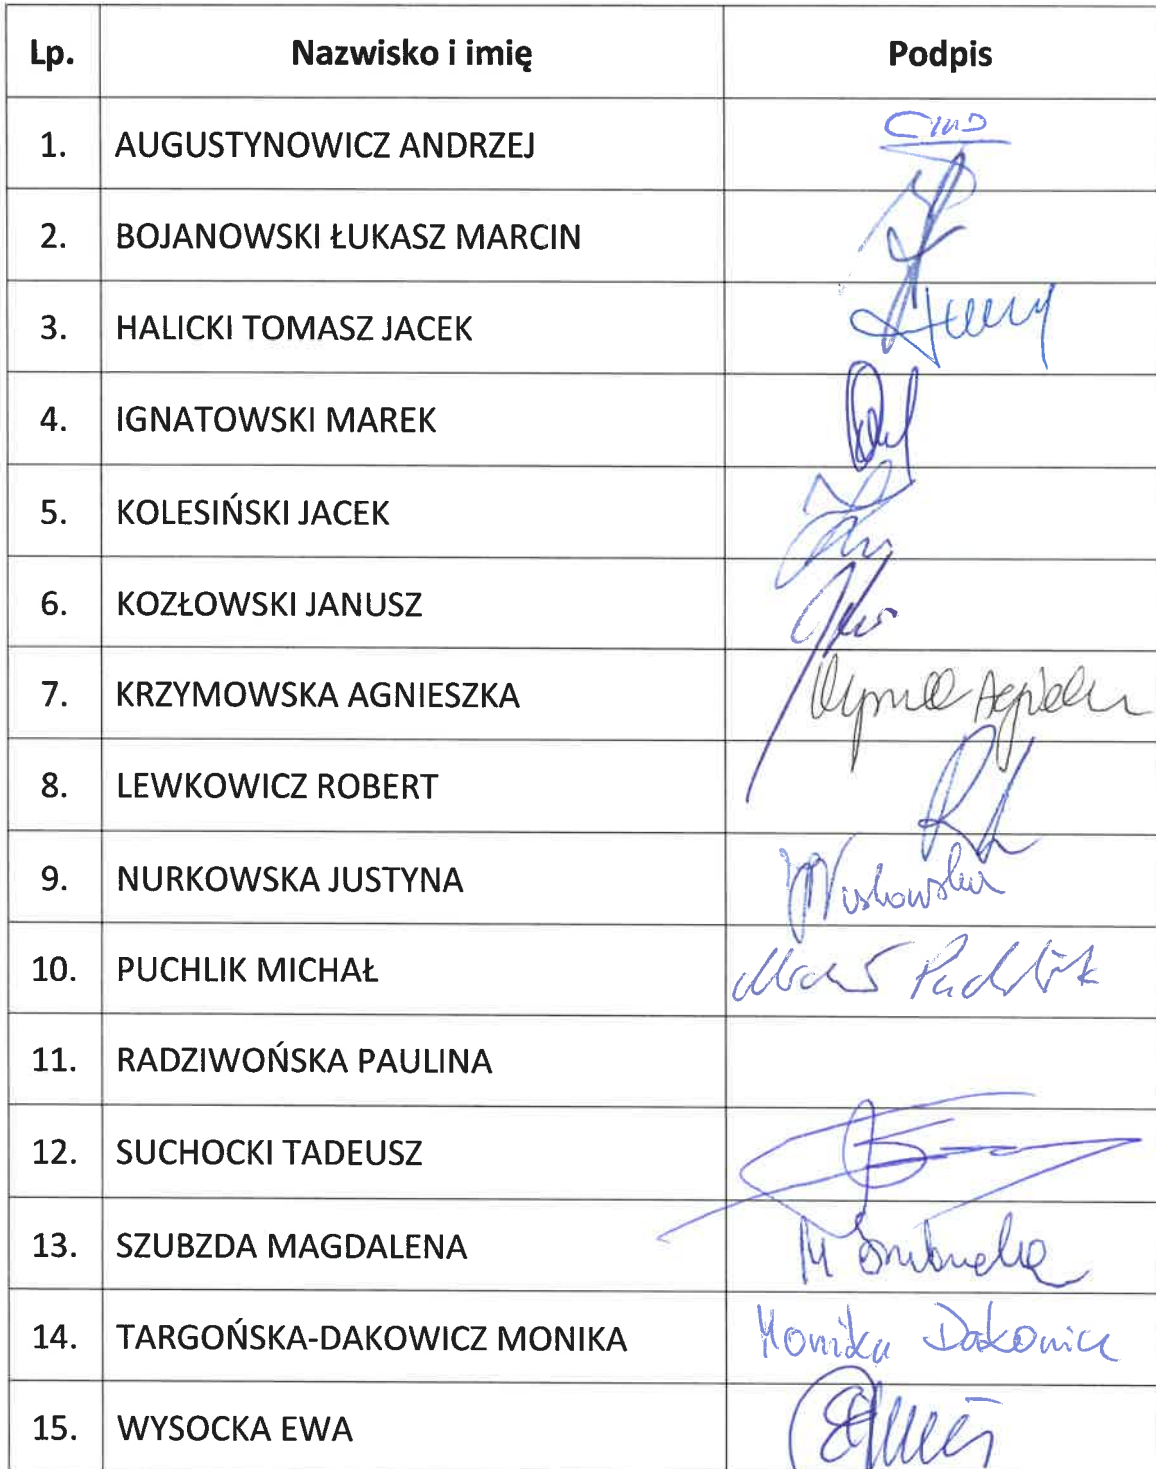 Lp. Nazwisko i imię Podpis
1. AUGUSTYNOWICZ ANDRZEJ
2. BOJANOWSKI ŁUKASZ MARCIN
3. HALICKI TOMASZ JACEK
4. IGNATOWSKI MAREK
5. KOLESIŃSKI JACEK
6. KOZŁOWSKI JANUSZ
7. KRZYMOWSKA AGNIESZKA
8. LEWKOWICZ ROBERT
9. NURKOWSKA JUSTYNA
10. PUCHLIK MICHAŁ
11. RADZIWOŃSKA PAULINA
12. SUCHOCKI TADEUSZ
13. SZUBZDA MAGDALENA
14. TARGOŃSKA-DAKOWICZ MONIKA Monika Dakowicz
15. WYSOCKA EWA